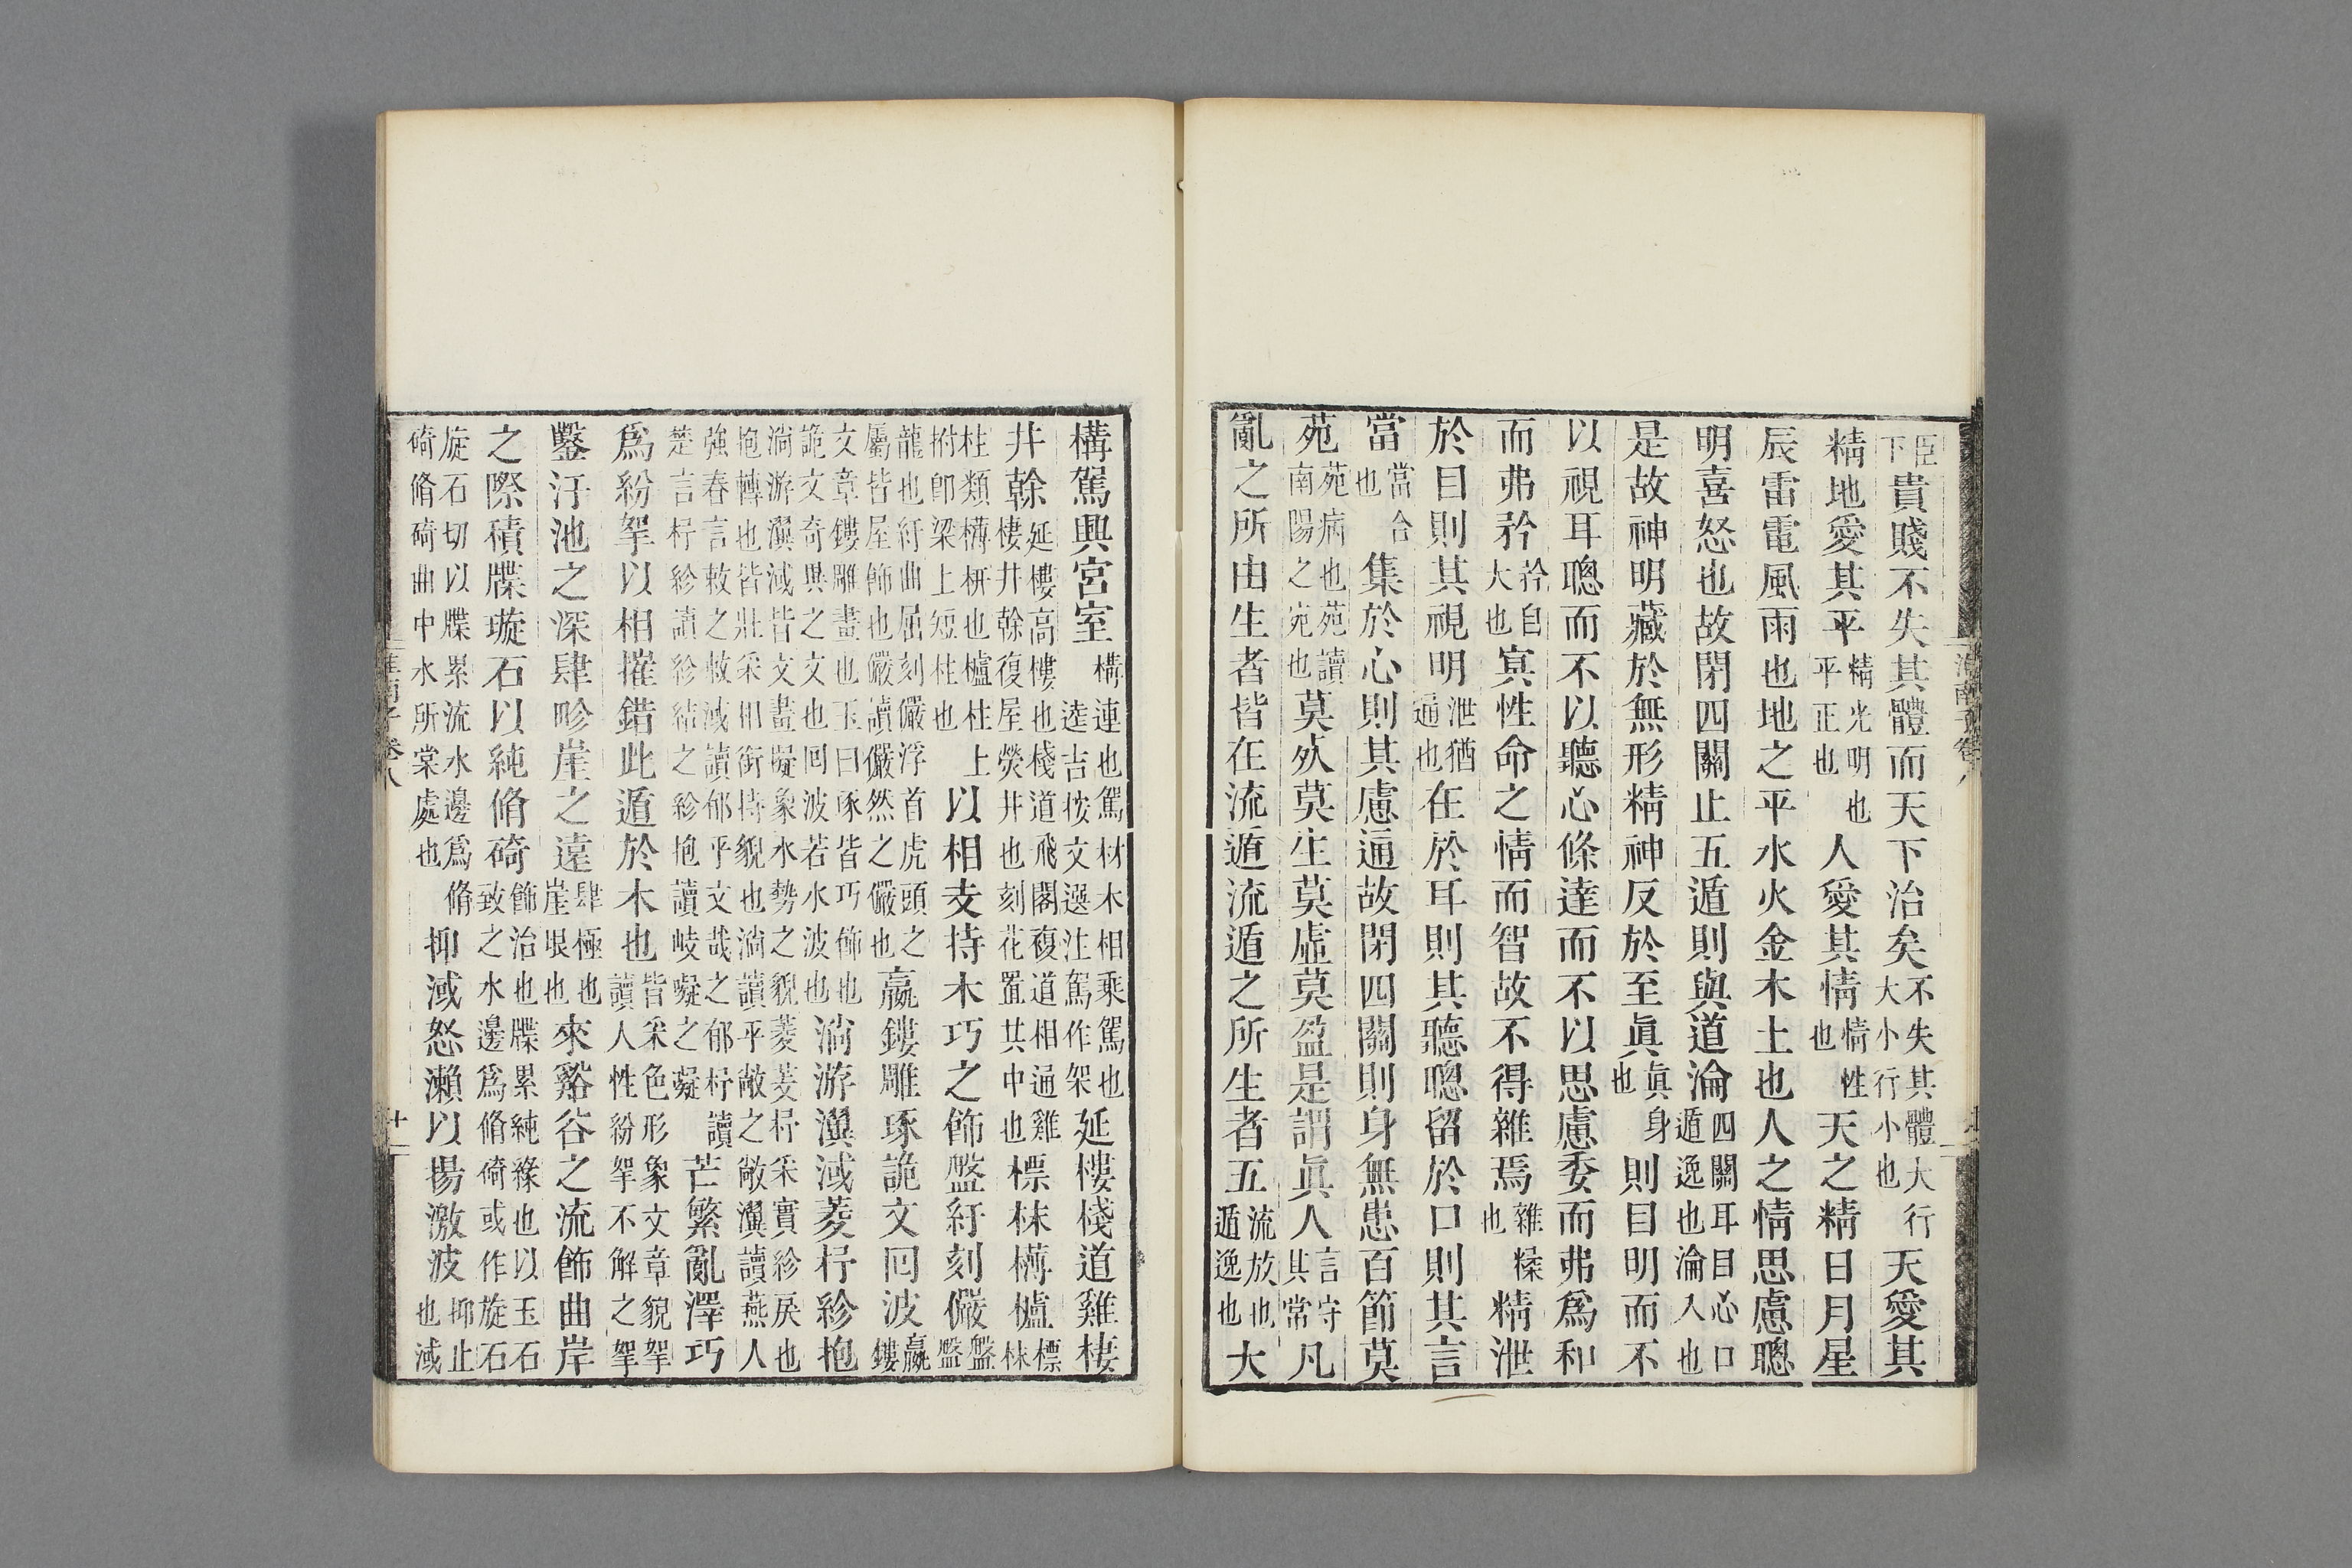 臣下貴賤不失其體而天下治矣不失其體大行大小行小也天愛其
精地愛其平精光明也平正也人愛其情情性也天之精日月星
辰雷電風雨也地之平水火金木土也人之情思慮聰
明喜怒也故閉四關止五遁則與道淪四關耳目心口遁逸也淪入也
是故神明藏於無形精神反於至眞眞身也則目明而不
以視耳聰而不以聽心條達而不以思慮委而弗爲和
而弗矜矜自大也冥性命之情而智故不得雜焉雜糅也精泄
於目則其視明泄猶通也在於耳則其聽聰留於口則其言
當當合也集於心則其慮通故閉四關則身無患百節莫
苑苑病也苑讀南陽之宛也莫死莫生莫虛莫盈是謂眞人言守其常凡
亂之所由生者皆在流遁流遁之所生者五流放也遁逸也大
構駕興宮室構連也駕材木相乘駕也逵吉按文選注駕作架延樓棧道雞棲
井榦延樓高樓也棧道飛閣複道相通雞棲井榦復屋熒井也刻花置其中也標枺欂櫨標枺
柱類欂枅也櫨柱上柎卽梁上短柱也以相支持木巧之飾盤紆刻儼盤盤
龍也紆曲屈刻儼浮首虎頭之屬皆屋飾也儼讀儼然之儼也嬴鏤雕琢詭文回波嬴鏤
文章鏤雕畫也玉曰琢皆巧飾也詭文奇異之文也回波若水波也淌游瀷淢菱杼紾抱
淌游瀷淢皆文畫擬象水勢之貌菱芰杼采實紾戾也抱轉也皆壯采相銜持貌也淌讀平敞之敞瀷讀燕人
強春言敕之敕淢讀郁乎文哉之郁杼讀楚言杼紾讀紾結之紾抱讀岐嶷之嶷芒繁亂澤巧
爲紛挐以相摧錯此遁於木也皆采色形象文章貌挐讀人性紛挐不解之挐
鑿汙池之深肆畛崖之遠肆極也崖垠也來谿谷之流飾曲岸
之際積牒璇石以純脩碕飾治也牒累純緣也以玉石致之水邊爲脩碕或作旋石
旋石切以牒累流水邊爲脩碕脩碕曲中水所棠處也抑淢怒瀨以揚激波抑止也淢
淮南子卷八
十一